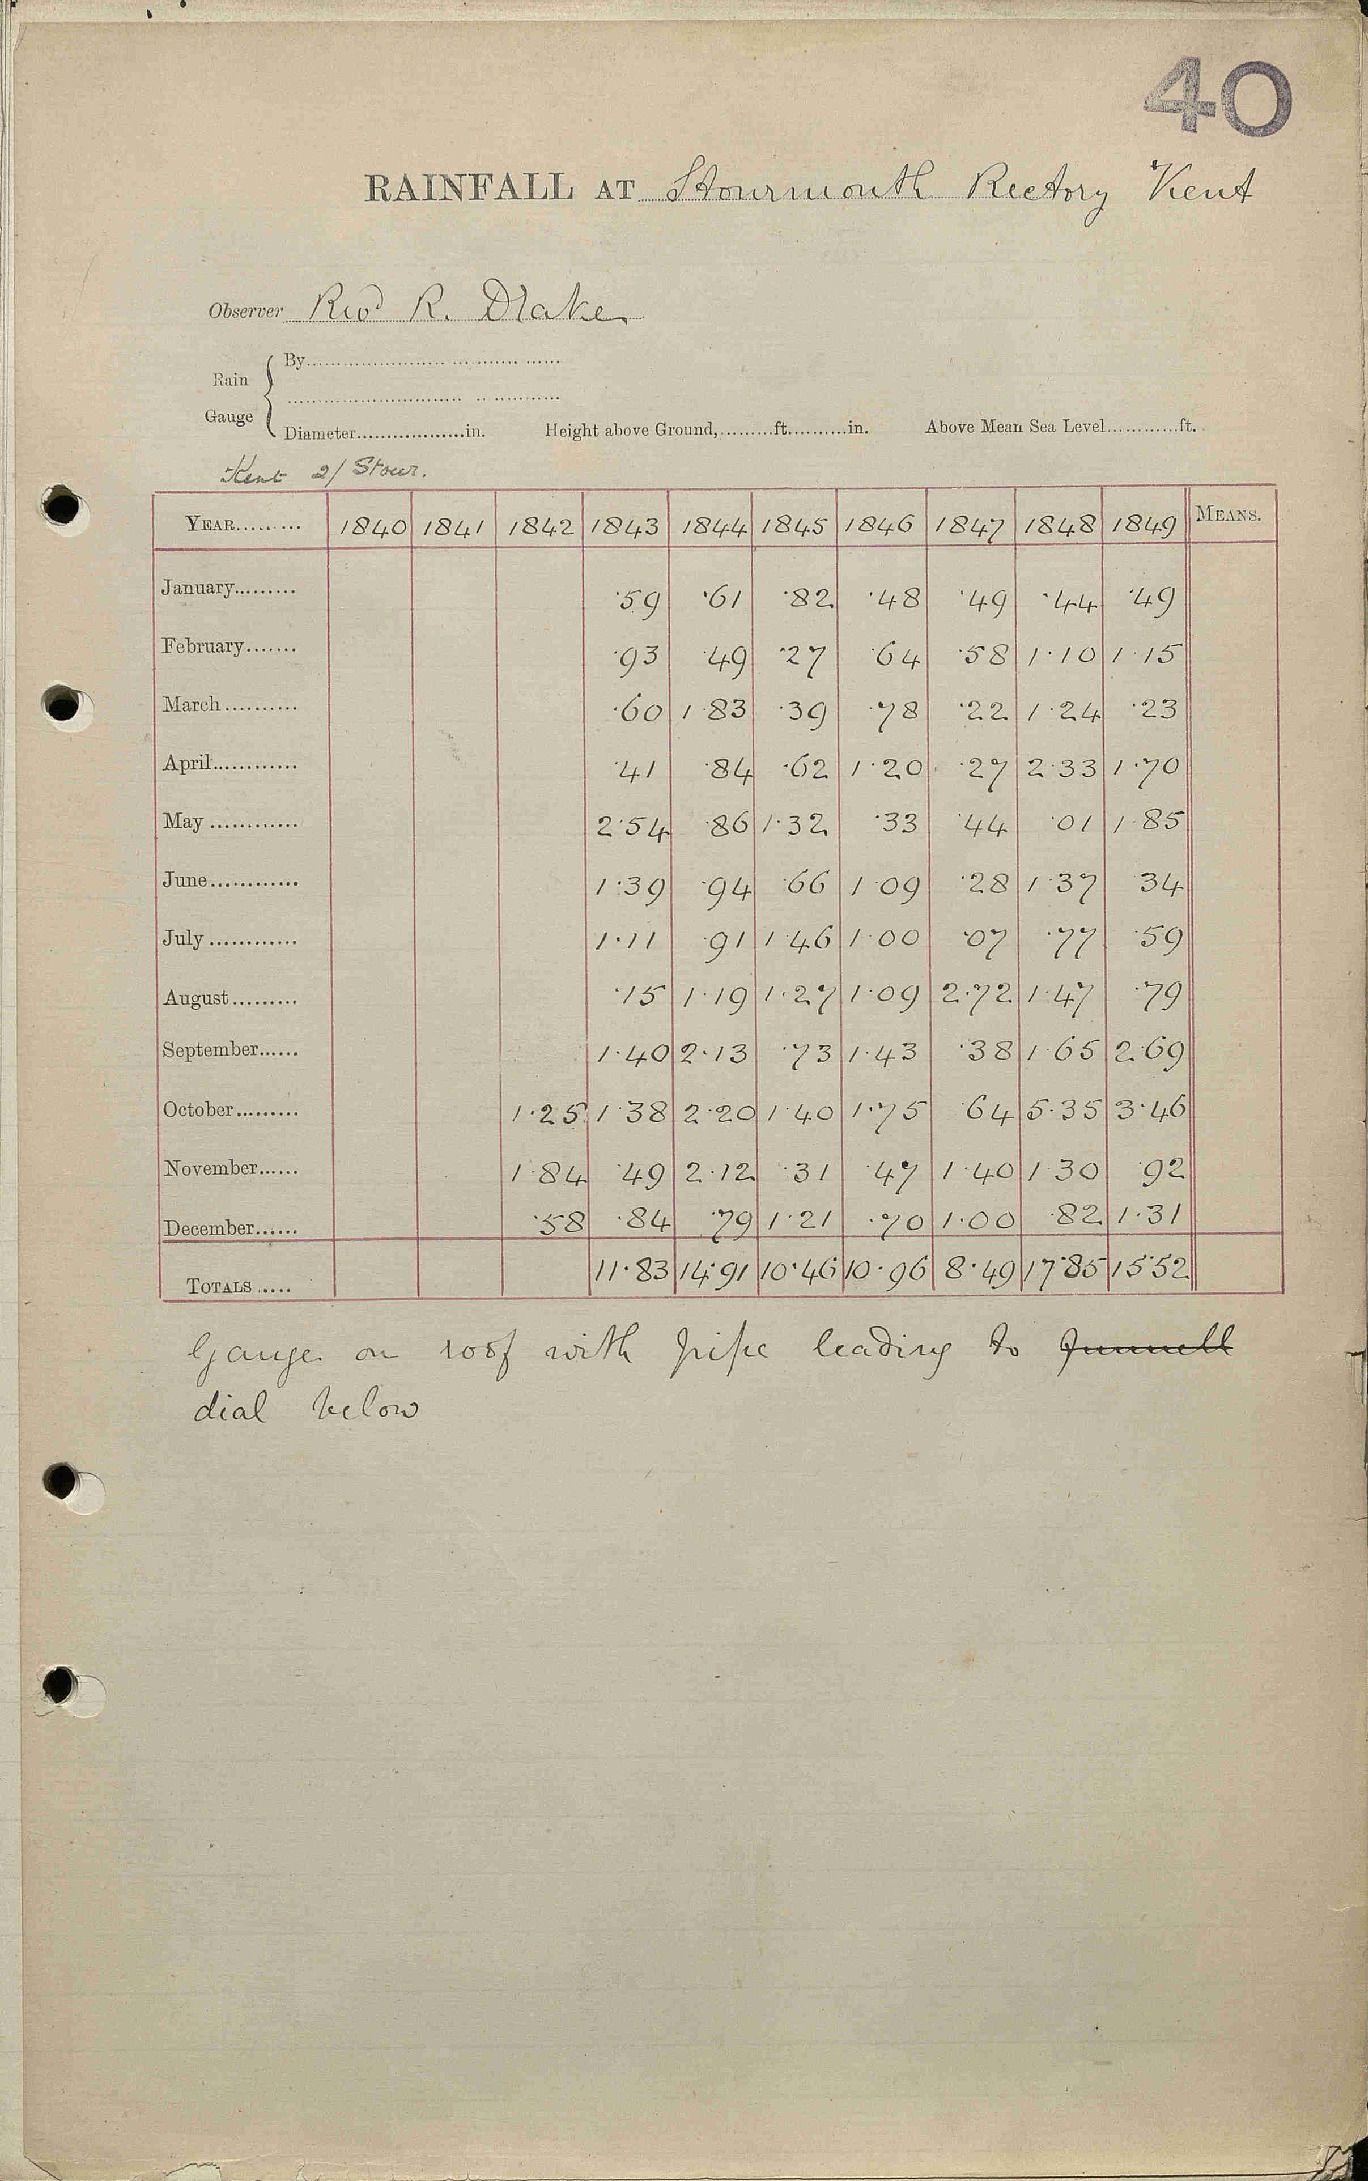 40
RAINFALL AT Stourmouth Rectory Kent
Observer Revd R. Drake
Rain Gauge { By
Diameter in. Height above Ground, ft. in. Above Mean Sea Level ft.
Kent 2/ Stour.
YEAR 1840 1841 1842 1843 1844 1845 1846 1847 1848 1849 MEANS.
January ·59 ·61 ·82 ·48 ·49 ·44 ·49
February ·93 ·49 ·27 ·64 ·58 1·10 1·15
March ·60 1·83 ·39 ·78 ·22 1·24 ·23
April ·41 ·84 ·62 1·20 ·27 2·33 1·70
May 2·54 ·86 1·32 ·33 ·44 ·01 1·85
June 1·39 ·94 ·66 1·09 ·28 1·37 ·34
July 1·11 ·91 1·46 1·00 ·07 ·77 ·59
August ·15 1·19 1·27 1·09 2·72 1·47 ·79
September 1·40 2·13 ·73 1·43 ·38 1·65 2·69
October 1·25 1·38 2·20 1·40 1·75 ·64 5·35 3·46
November 1·84 ·49 2·12 ·31 ·47 1·40 1·30 ·92
December ·58 ·84 ·79 1·21 ·70 1·00 ·82 1·31
TOTALS 11·83 14·91 10·46 10·96 8·49 17·85 15·52
Gauge on roof with pipe leading to funnell
dial below